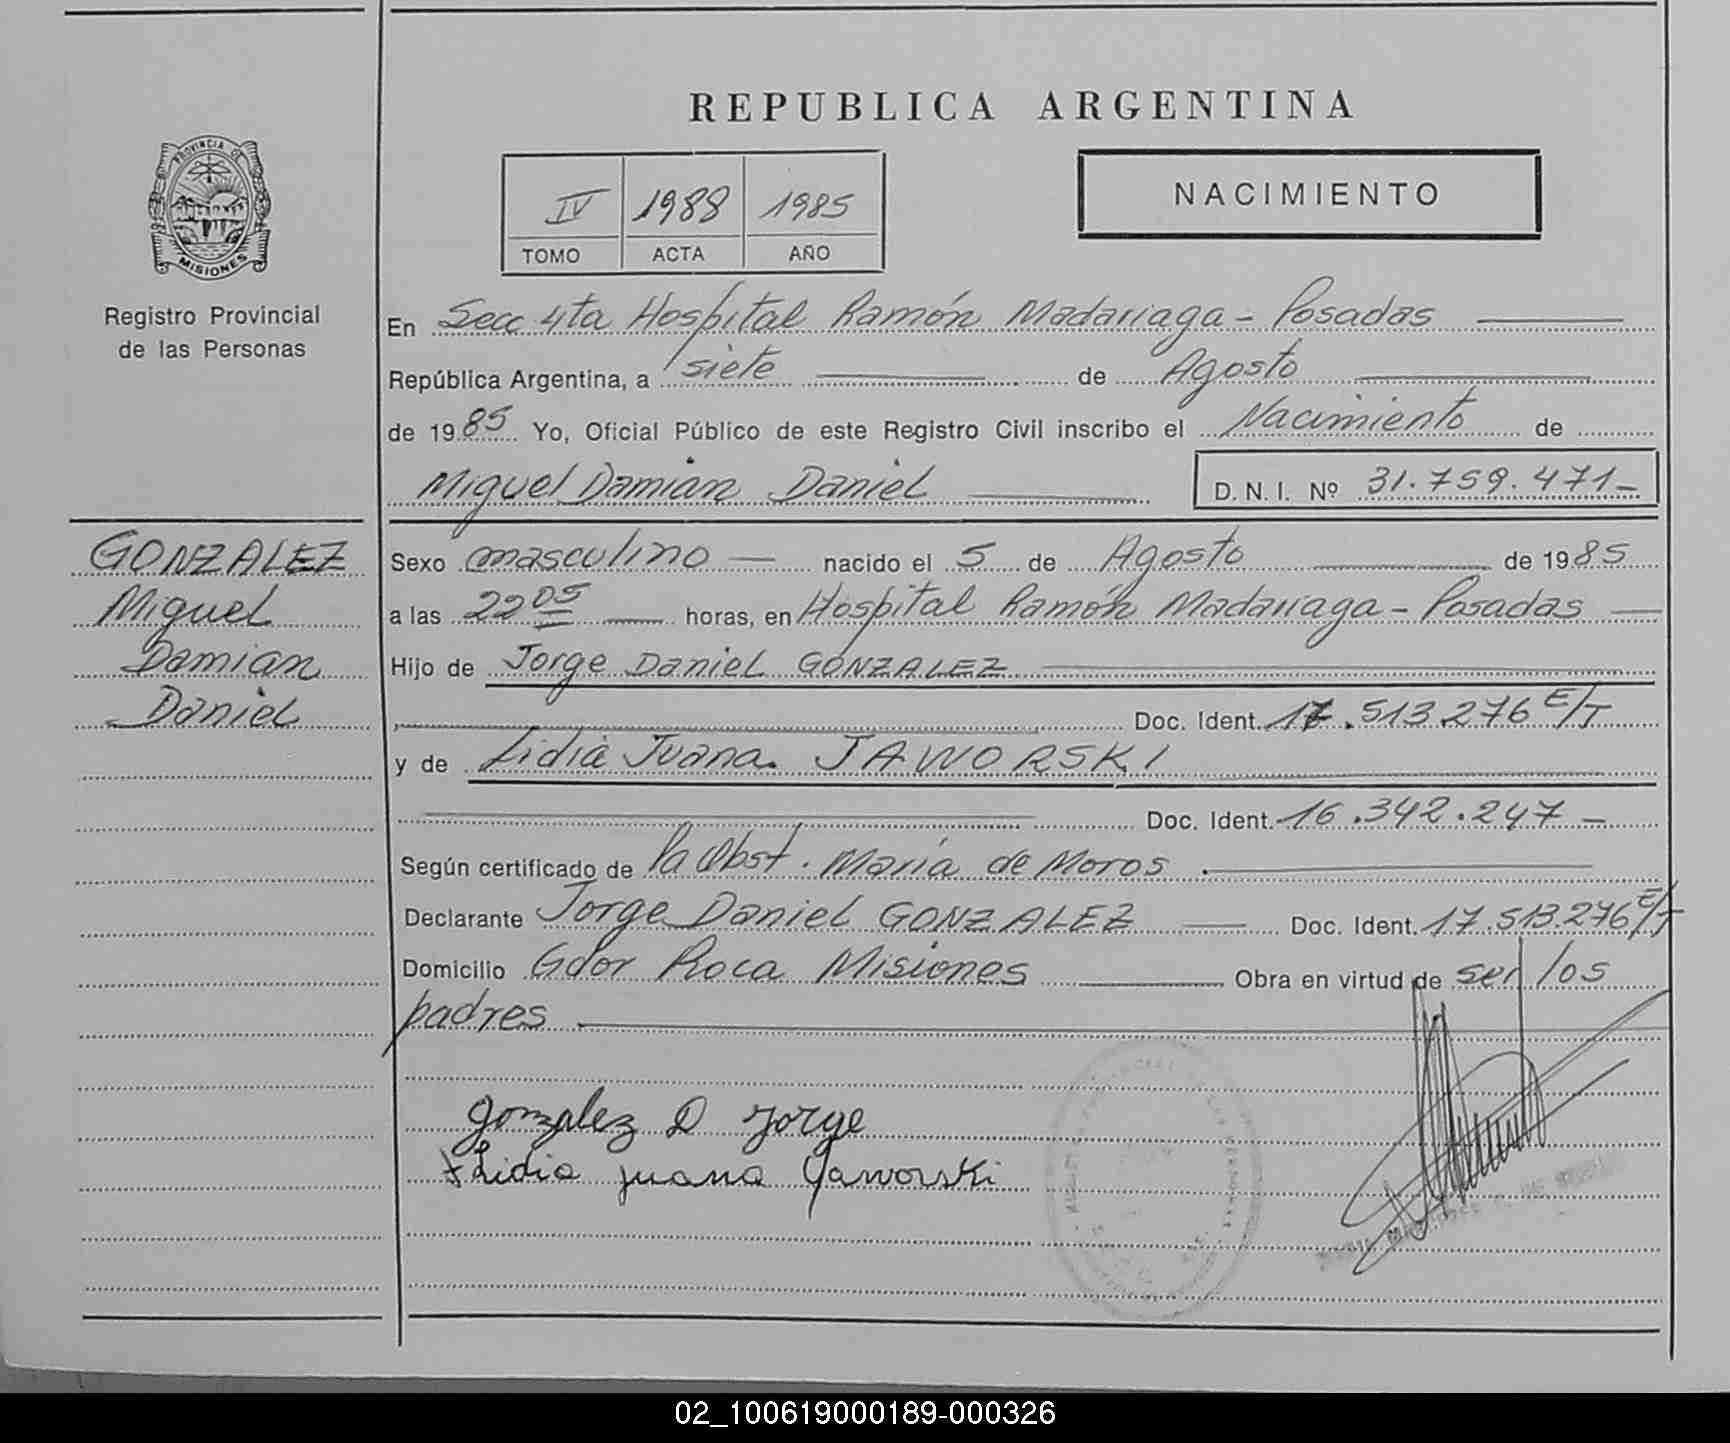 REPUBLICA ARGENTINA
PROVINCIA DE
MISIONES
Registro Provincial
de las Personas
IV 1988 1985
TOMO ACTA AÑO
NACIMIENTO
En Secc 4ta Hospital Ramón Madariaga - Posadas
República Argentina, a siete de Agosto
de 1985 Yo, Oficial Público de este Registro Civil inscribo el Nacimiento de
Miguel Damian Daniel D. N. I. Nº 31.759.471-
GONZALEZ
Miguel
Damian
Daniel
Sexo masculino nacido el 5 de Agosto de 1985
a las 22 05 horas, en Hospital Ramón Madariaga - Posadas
Hijo de Jorge Daniel GONZALEZ
Doc. Ident. 17.513.276 E/T
y de Lidia Juana JAWORSKI
Doc. Ident. 16.342.247
Según certificado de la Obst. María de Moros
Declarante Jorge Daniel GONZALEZ Doc. Ident. 17.513.276 E/T
Domicilio Gdor Roca Misiones Obra en virtud de ser los
padres
Gonzalez D Jorge
Lidia Juana Jaworski
02_100619000189-000326